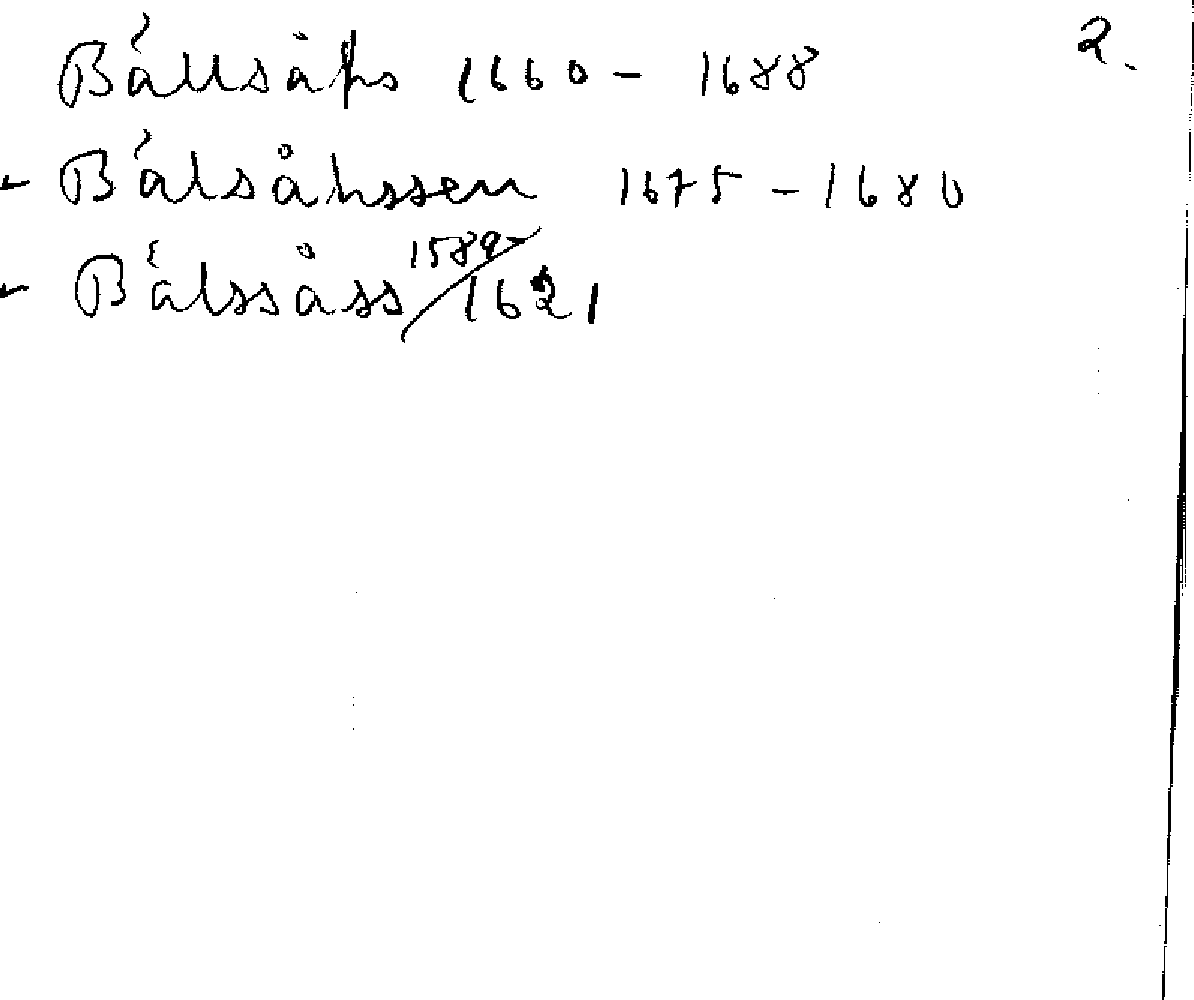 2.
Bålsåhs 1660 - 1688
- Bålsåhssen 1675 - 1680
- Bålssåss 1589- / 1621